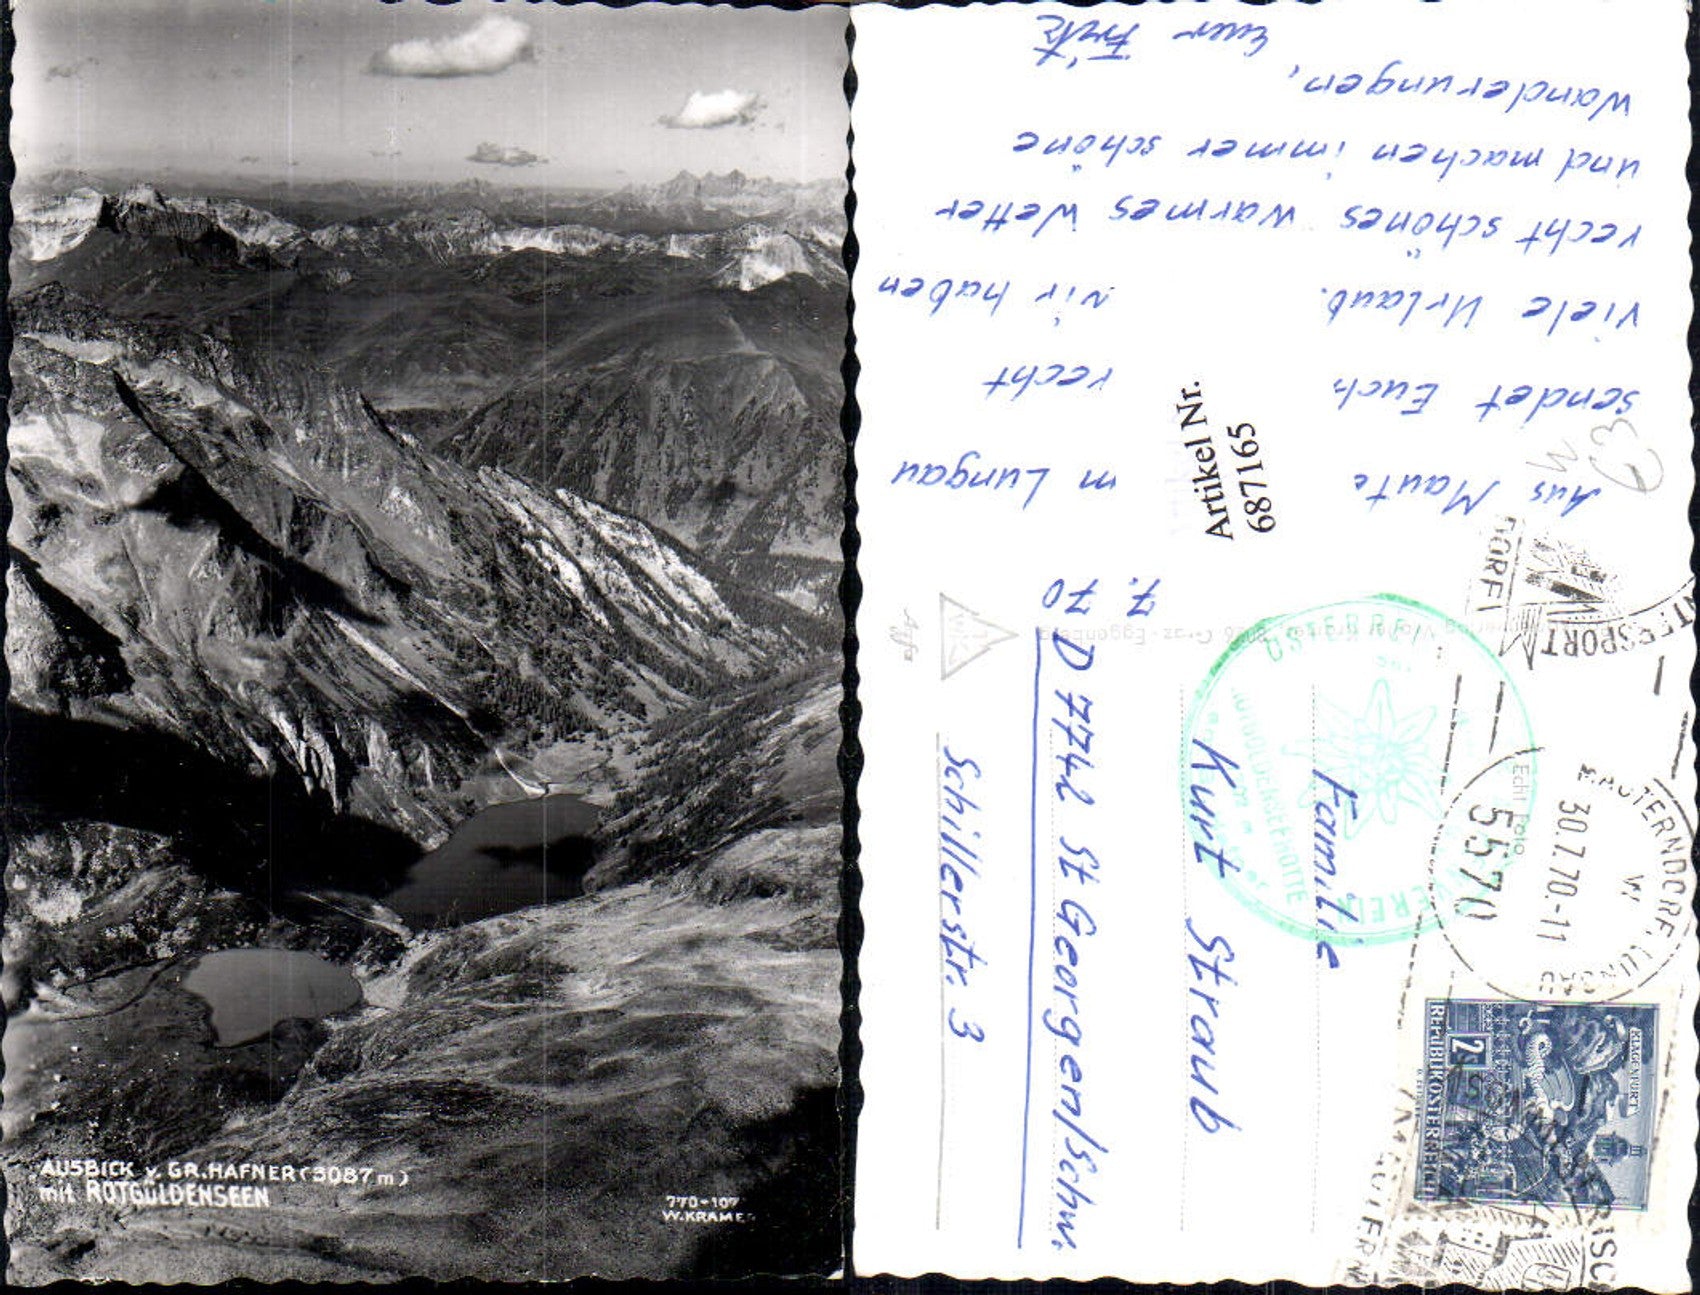 AUSBICK v. GR. HAFNER (3087 m)
mit ROTGÜLDENSEEN
770-107
W. KRAMER
Aus Maute m Lungau
sendet Euch recht
viele Urlaub. Wir haben
recht schönes warmes Wetter
und machen immer schöne
Wanderungen,
Euer Fritz
Artikel Nr.
687165
€3
7. 70
Familie
Kurt Straub
D 7742 St Georgen/Schw.
Schillerstr. 3
Agfa
Echt Foto
Graz-Eggenberg
ÖSTERR.
ROTGÜLDENSEEHÜTTE
MAUTERNDORF, LUNGAU
W
30.7.70-11
5570
KLAGENFURT
2
REPUBLIK ÖSTERREICH